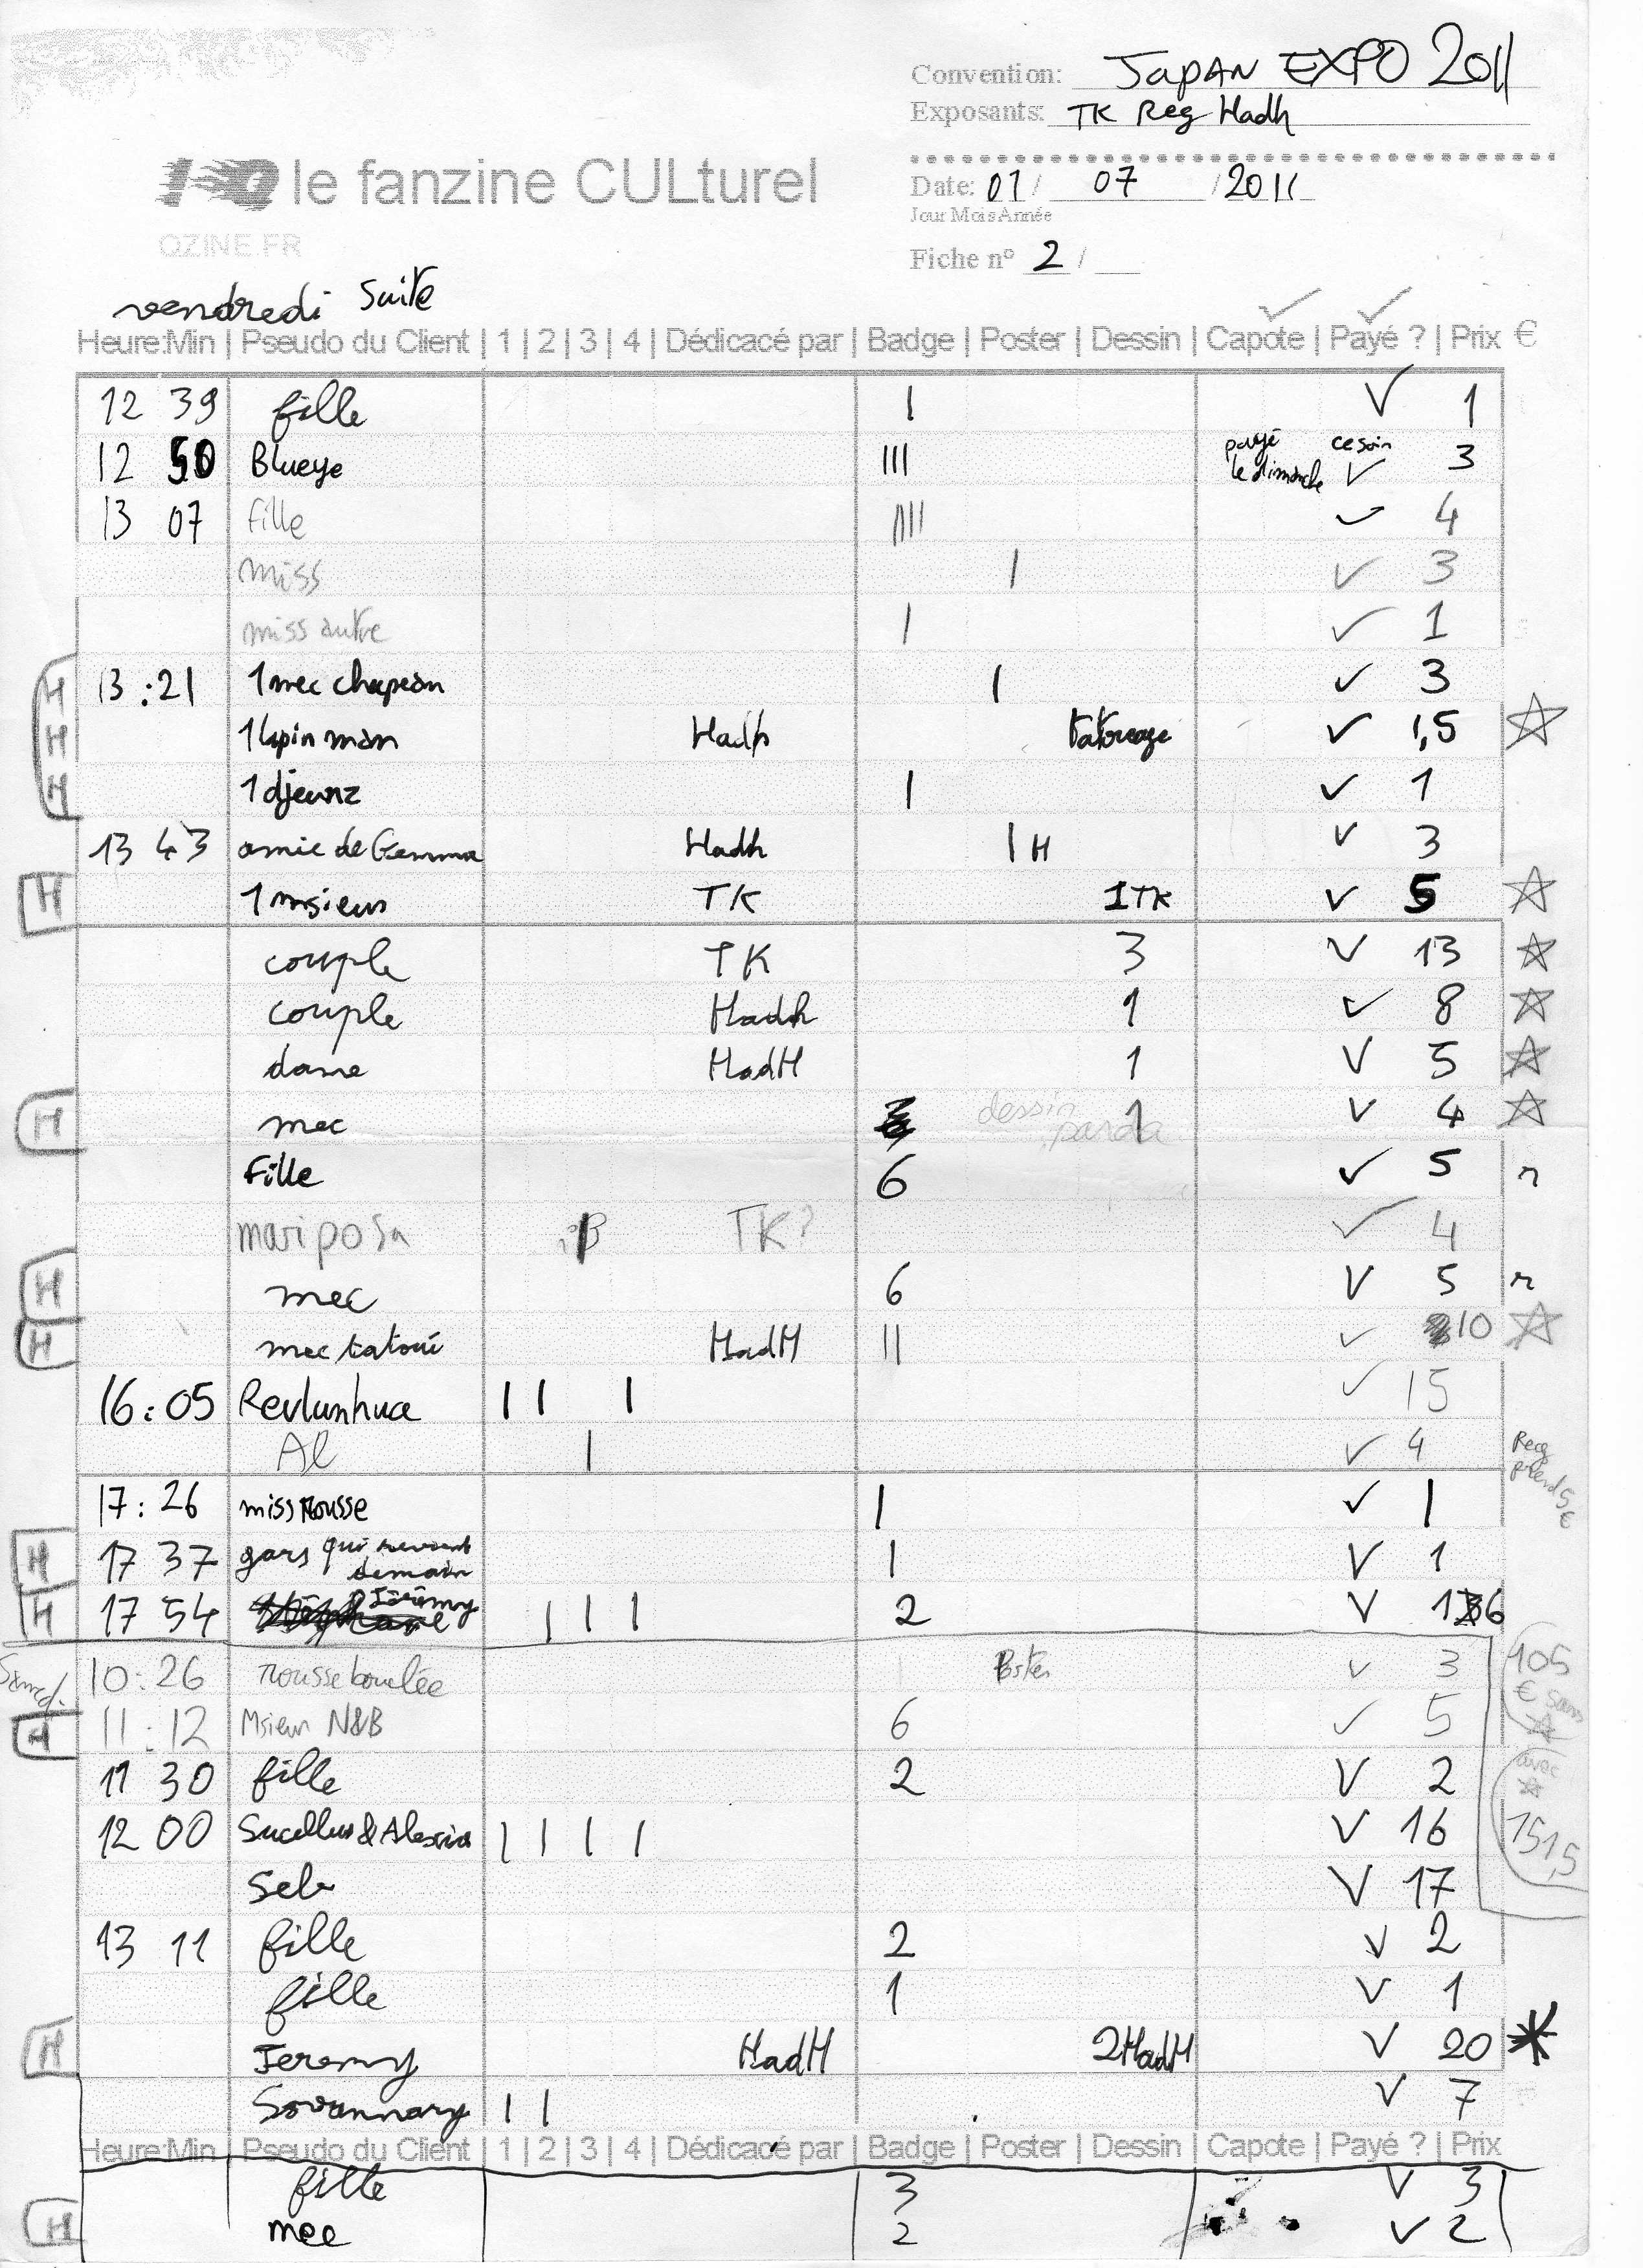 Convention: JapAN EXPO 2011
Exposants: TK Reg Hadh
le fanzine CULturel
Date: 01/ 07 /2011
Jour Mois Année
OZINE.FR
Fiche n° 2 /
vendredi suite
Heure:Min | Pseudo du Client | 1 | 2 | 3 | 4 | Dédicacé par | Badge | Poster | Dessin | Capote | Payé ? | Prix €
12 39 fille | ✓ 1
12 50 Blueye ||| payé le dimanche ce soir ✓ 3
13 07 fille |||| ✓ 4
miss | ✓ 3
miss autre | ✓ 1
H 13:21 1 mec chapeau | ✓ 3
H 1 lapin man Hadh tatouage ✓ 1,5 ☆
H 1 djeunz | ✓ 1
13 43 amie de Gemma Hadh | H ✓ 3
H 1 msieur TK 1TK ✓ 5 ☆
couple TK 3 ✓ 13 ☆
couple Hadh 1 ✓ 8 ☆
dame HadH 1 ✓ 5 ☆
H mec dessin panda 1 ✓ 4 ☆
Fille 6 ✓ 5 r
mariposa TK? ✓ 4
H mec 6 ✓ 5 r
H mec tatoué HadH || ✓ 10 ☆
16:05 Revlunhuce | | | ✓ 15
Al | ✓ 4 Reg prend 5€
17:26 miss rousse | ✓ 1
H 17 37 gars qui revient demain | ✓ 1
H 17 54 Jérémy | | | 2 ✓ 16
Samedi 10:26 rousse bouclée Poster ✓ 3 105 € sans ☆
H 11:12 Msieur N&B 6 ✓ 5
11 30 fille 2 ✓ 2 avec ☆
12 00 Sucellus & Alexia | | | | ✓ 16 151,5
Seb ✓ 17
13 11 fille 2 ✓ 2
fille 1 ✓ 1
H Jeremy HadH 2HadH ✓ 20 *
Sovannary | | ✓ 7
Heure:Min | Pseudo du Client | 1 | 2 | 3 | 4 | Dédicacé par | Badge | Poster | Dessin | Capote | Payé ? | Prix
fille 3 ✓ 3
H mec 2 ✓ 2